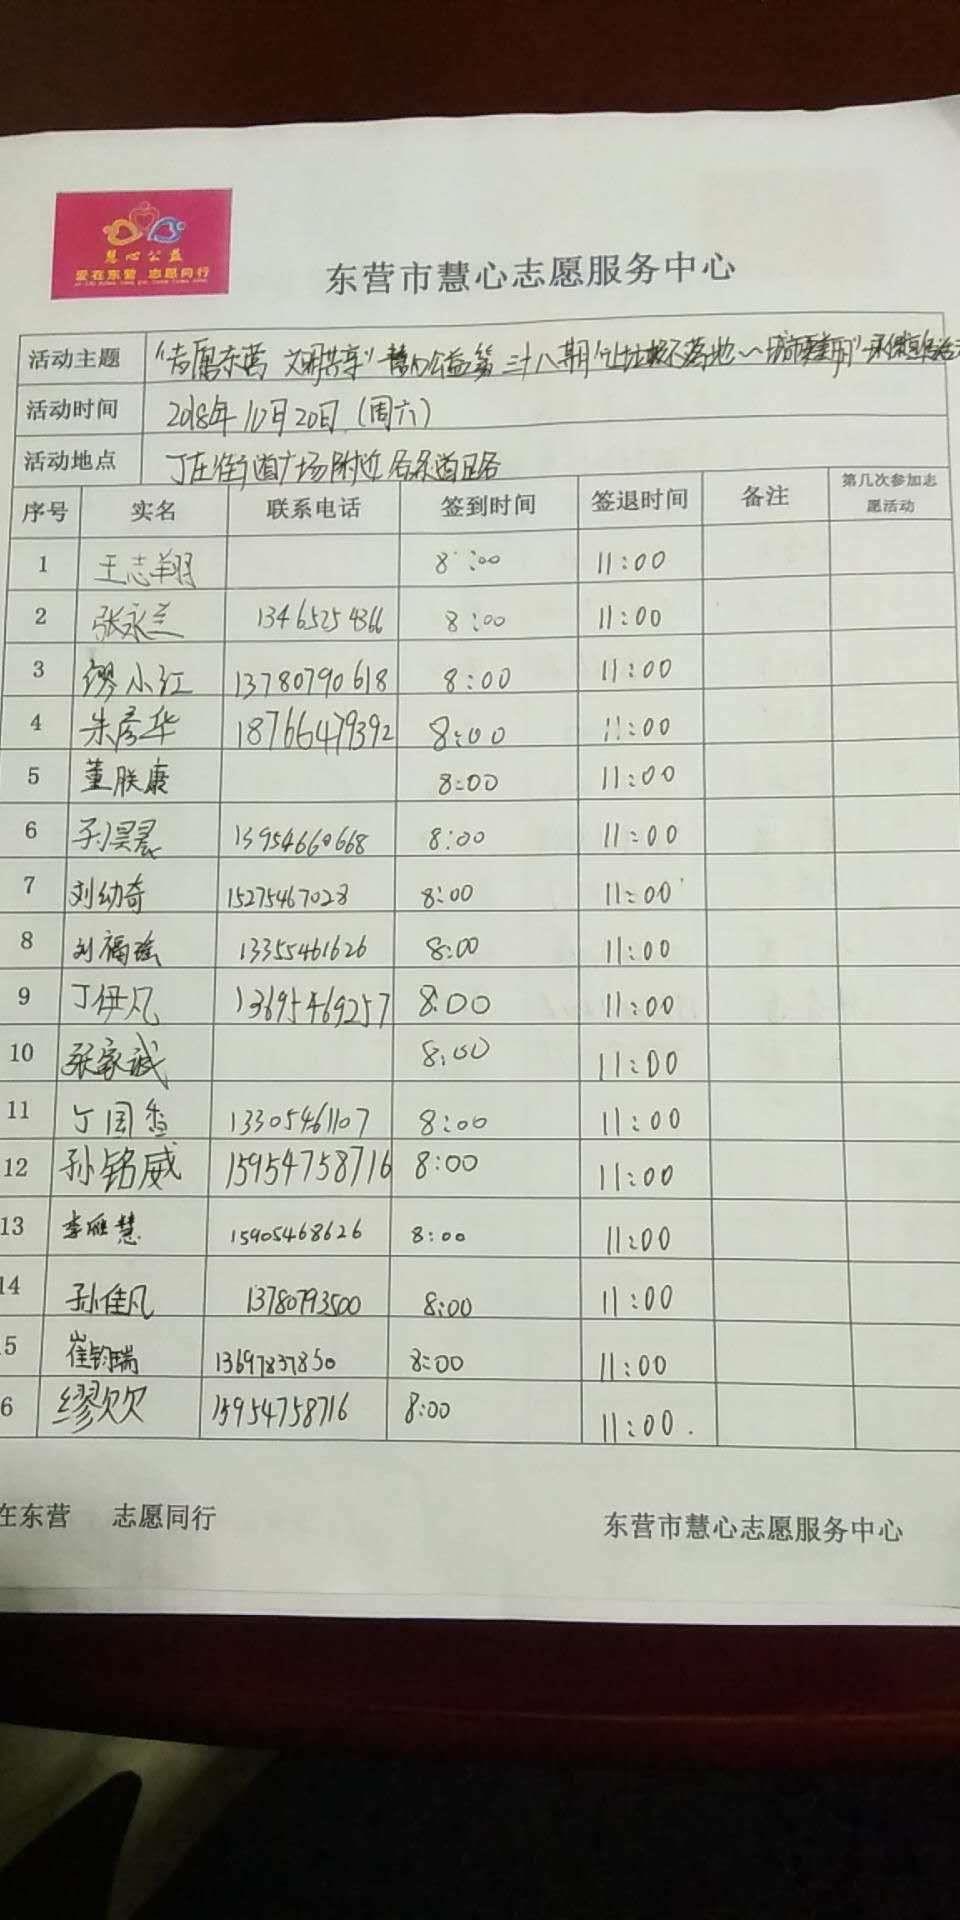 慧心公益
爱在东营 志愿同行
东营市慧心志愿服务中心
活动主题 “志愿东营 文明共享”慧心公益第三十八期“让垃圾不落地
活动时间 2018年10月20日(周六)
活动地点 丁庄街道广场附近各条道路
序号 实名 联系电话 签到时间 签退时间 备注 第几次参加志愿活动
1 王志翔 8:00 11:00
2 张永兰 13465254366 8:00 11:00
3 缪小江 13780790618 8:00 11:00
4 朱彦华 18766479392 8:00 11:00
5 董朕康 8:00 11:00
6 刘昊晟 13954660668 8:00 11:00
7 刘幼奇 15275467028 8:00 11:00
8 刘福瑶 13355461626 8:00 11:00
9 丁伊凡 13695469257 8:00 11:00
10 张家诚 8:00 11:00
11 丁国香 13305461107 8:00 11:00
12 孙铭威 15954758716 8:00 11:00
13 李雁慧 15905468626 8:00 11:00
14 孙佳凡 13780793500 8:00 11:00
5 崔钧瑞 13697837850 8:00 11:00
6 缪欠欠 15954758716 8:00 11:00.
在东营 志愿同行 东营市慧心志愿服务中心